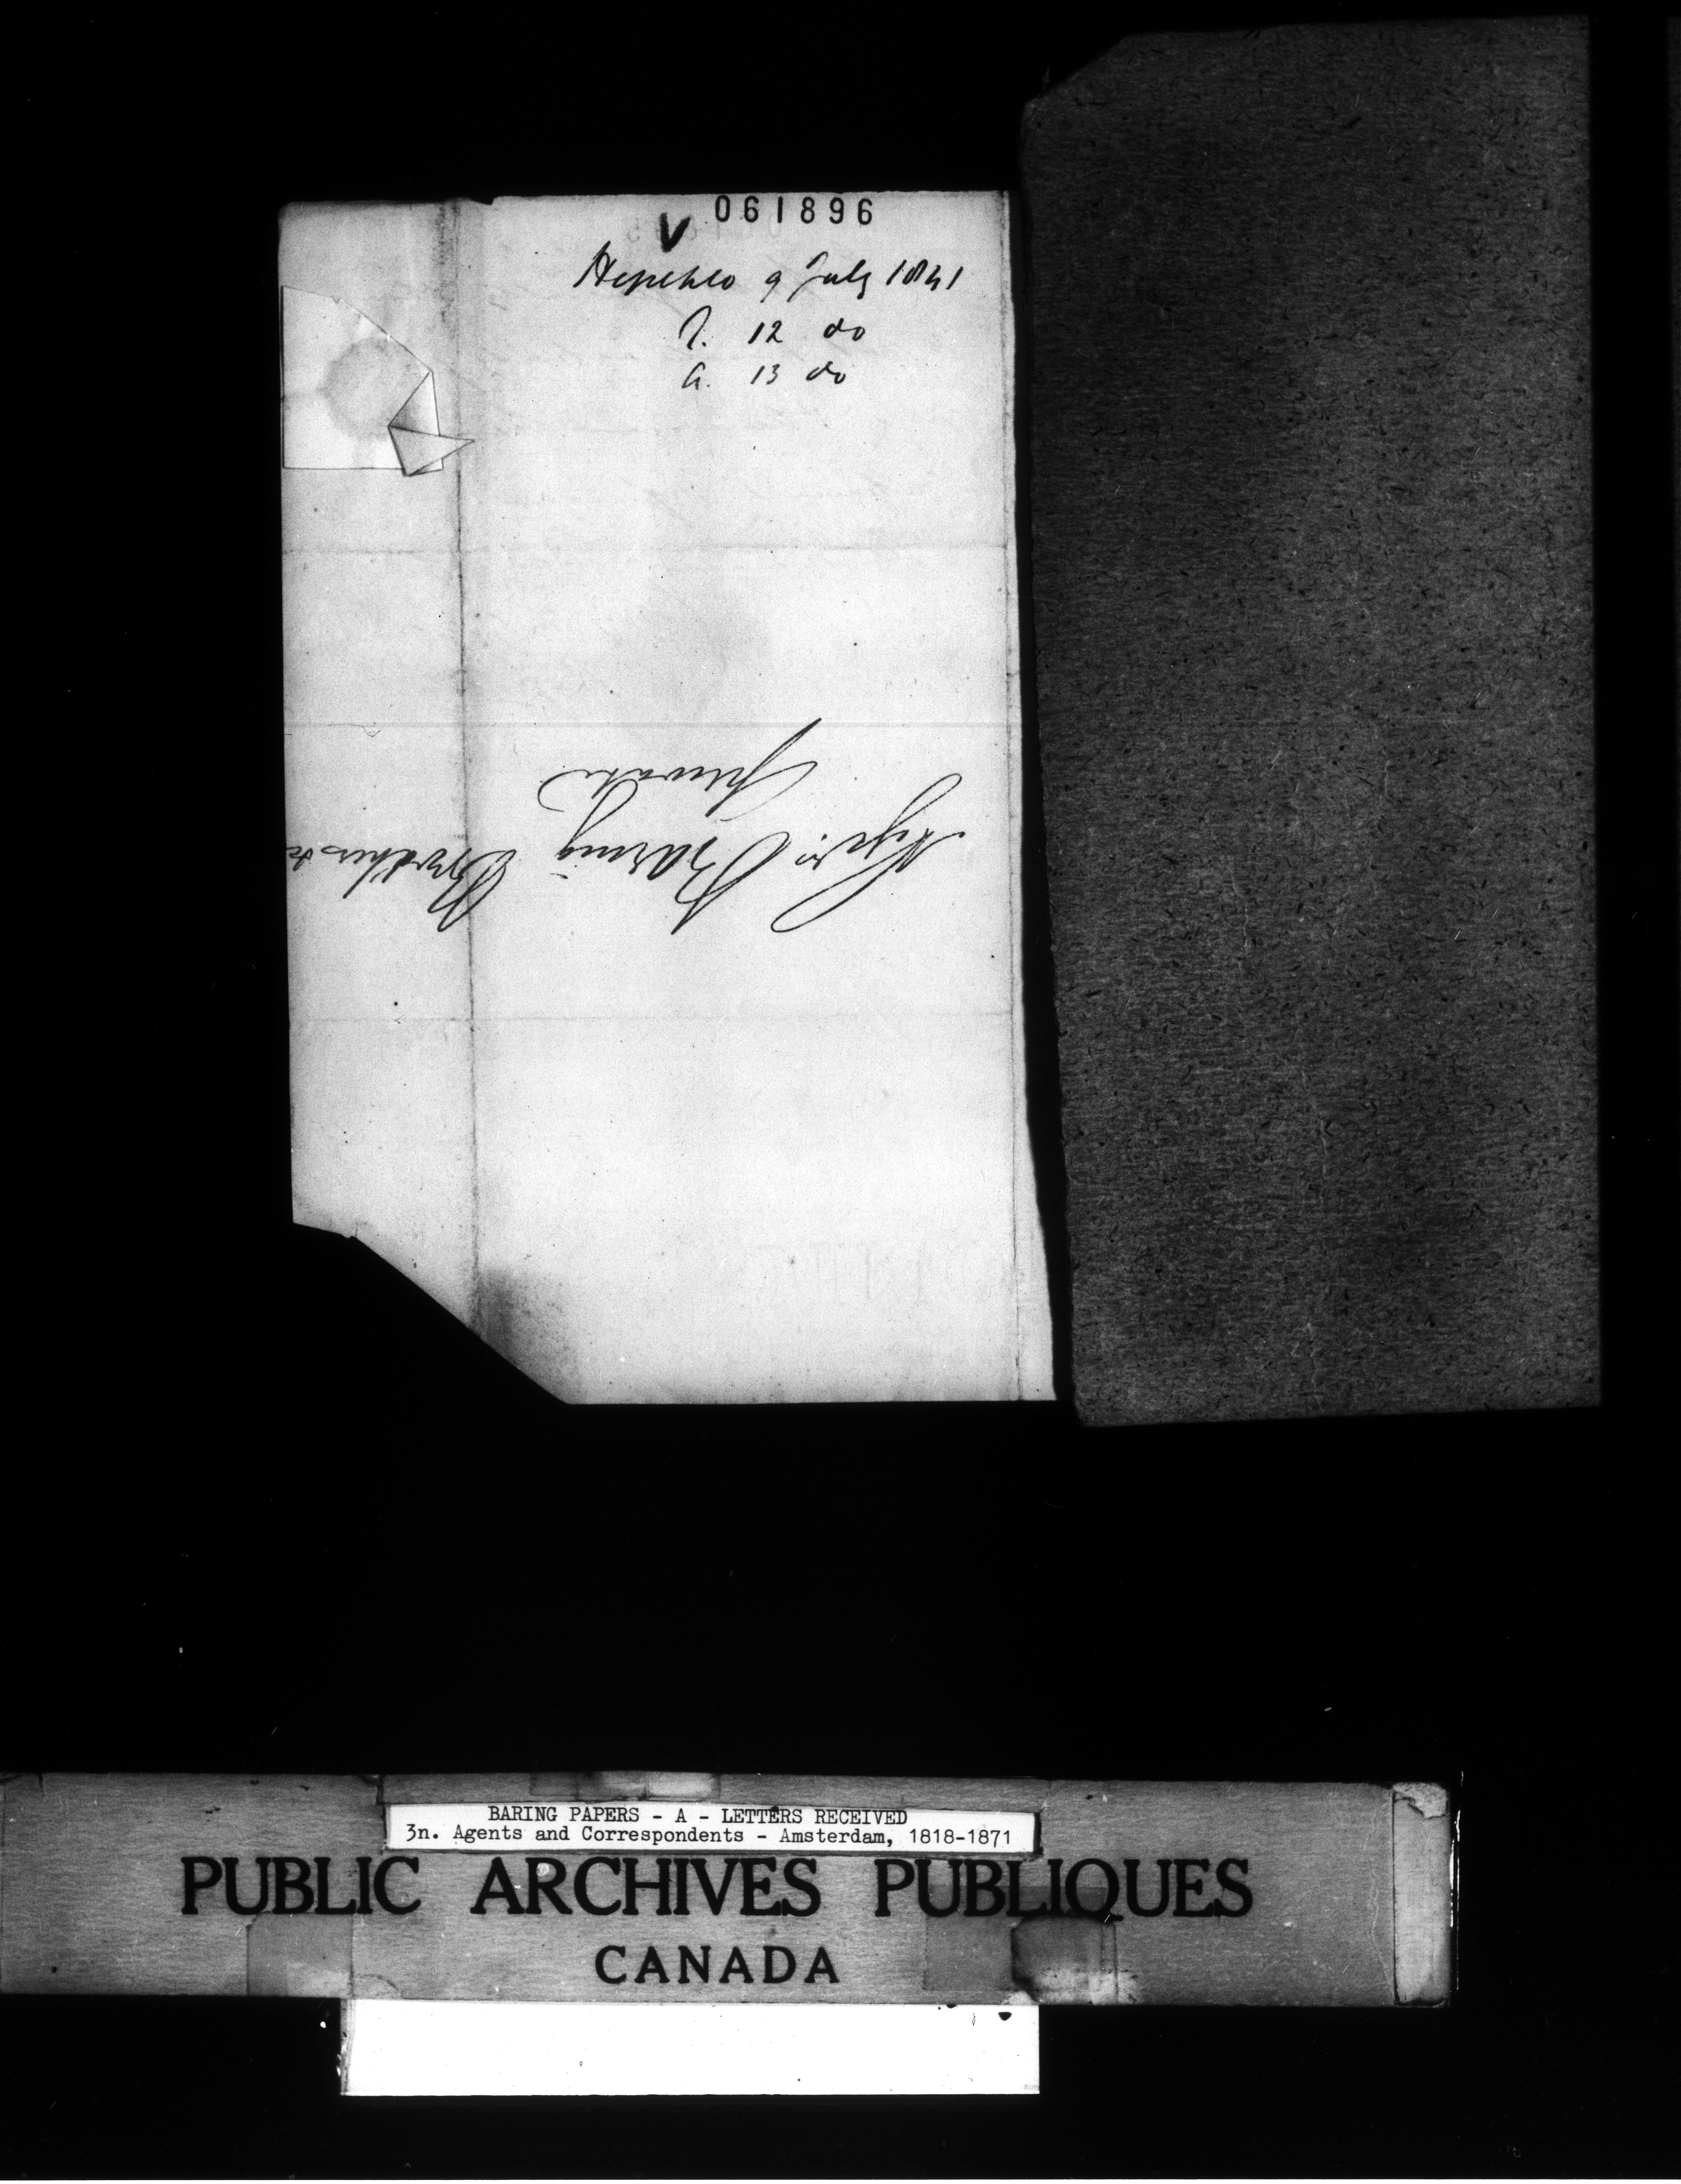 061896
V
Hope & Co 9 July 1841
R. 12 do
A. 13 do
private
Messrs. Baring Brothers &c
BARING PAPERS - A - LETTERS RECEIVED
3n. Agents and Correspondents - Amsterdam, 1818-1871
PUBLIC ARCHIVES PUBLIQUES
CANADA